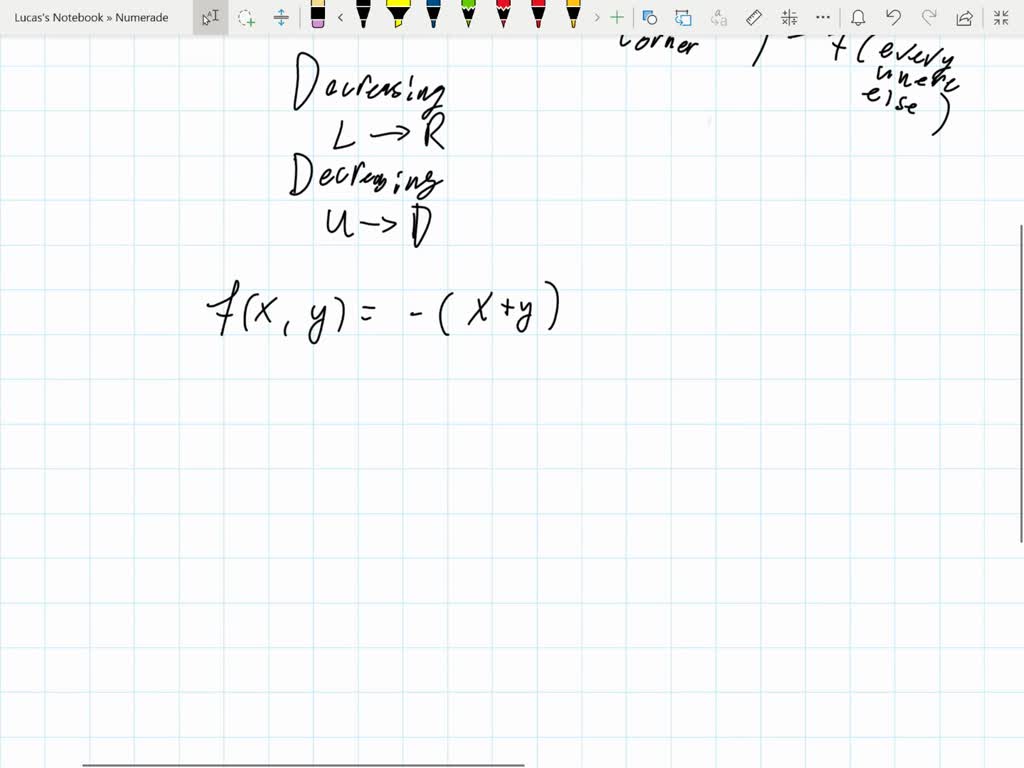 Lucas's Notebook » Numerade
corner ) = f(every
where
else)
Decreasing
L → R
Decreasing
U → D
f(x, y) = -(x+y)